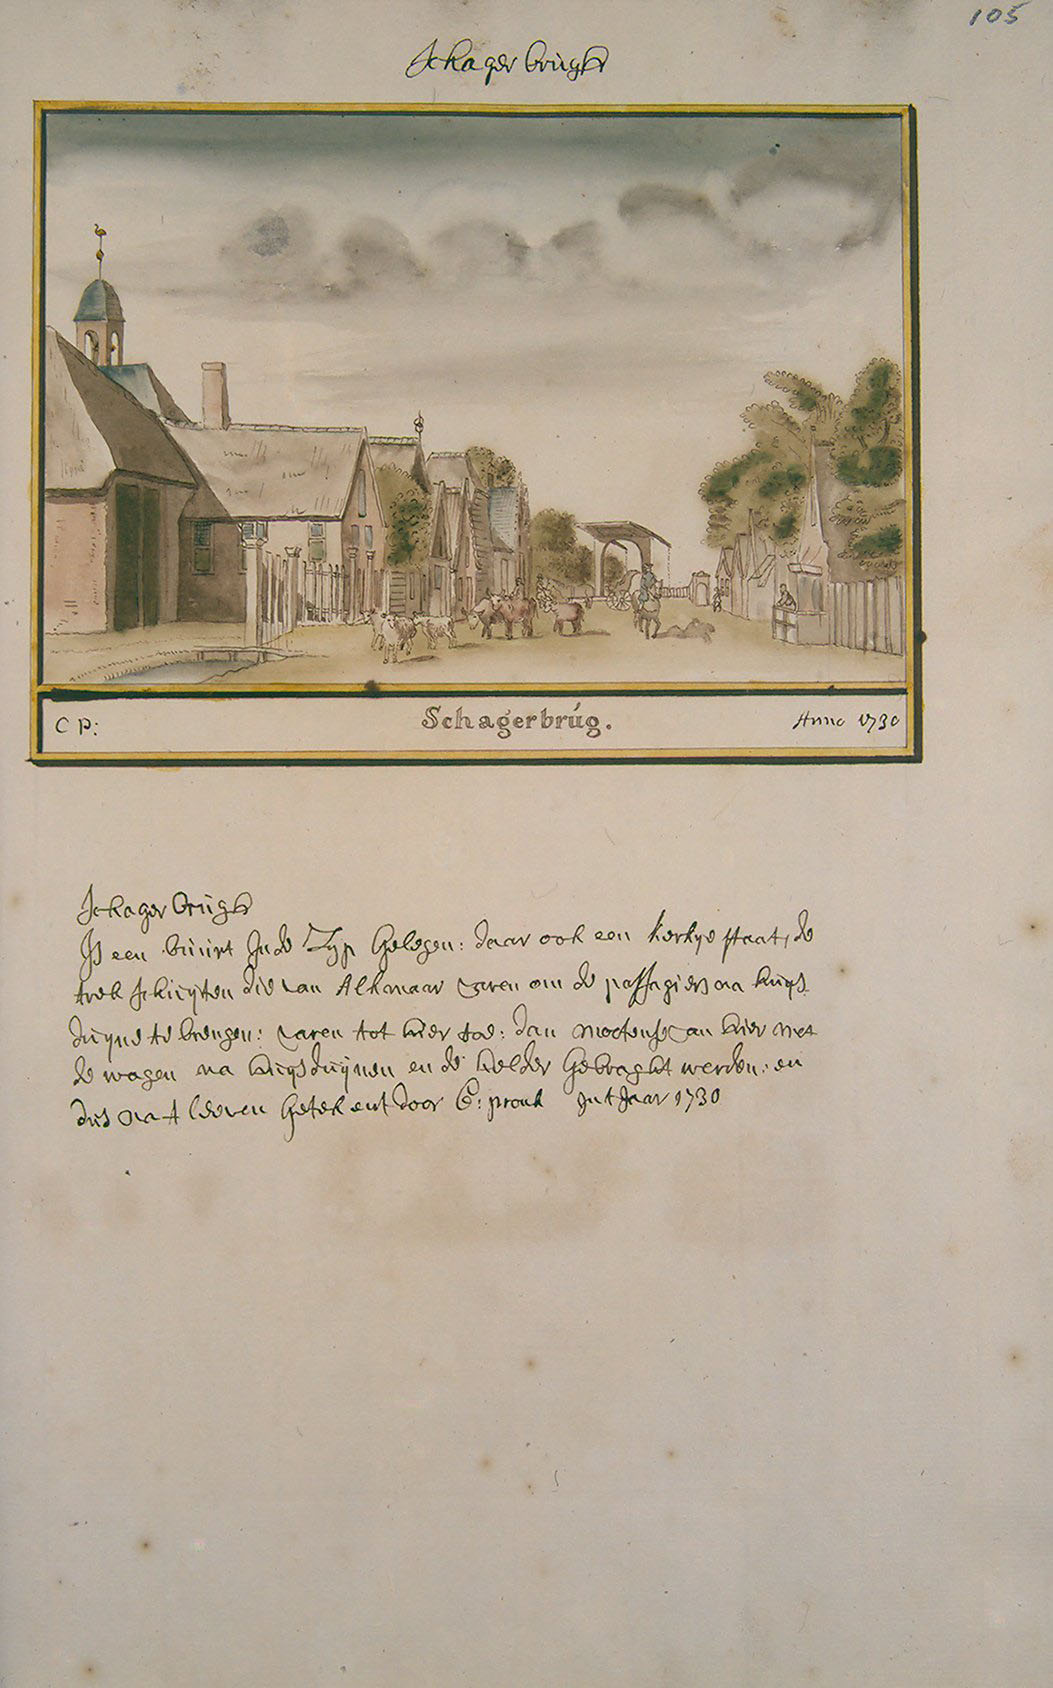 105
Schager brugh
C P:
Schagerbrúg.
Anno 1730
Schager brugh
Is een buúrt Inde Zyp Gelegen: daar ook een kerkje staat, de
trek schuyten die van Alkmaar varen om de passagiers na huys
duyne te brengen: varen tot hier toe: dan mooten se van hier met
de wagen na huysduynen en de helder Gebraght werden: en
dus na t leeven Getekent door C: pronk Int Jaar 1730